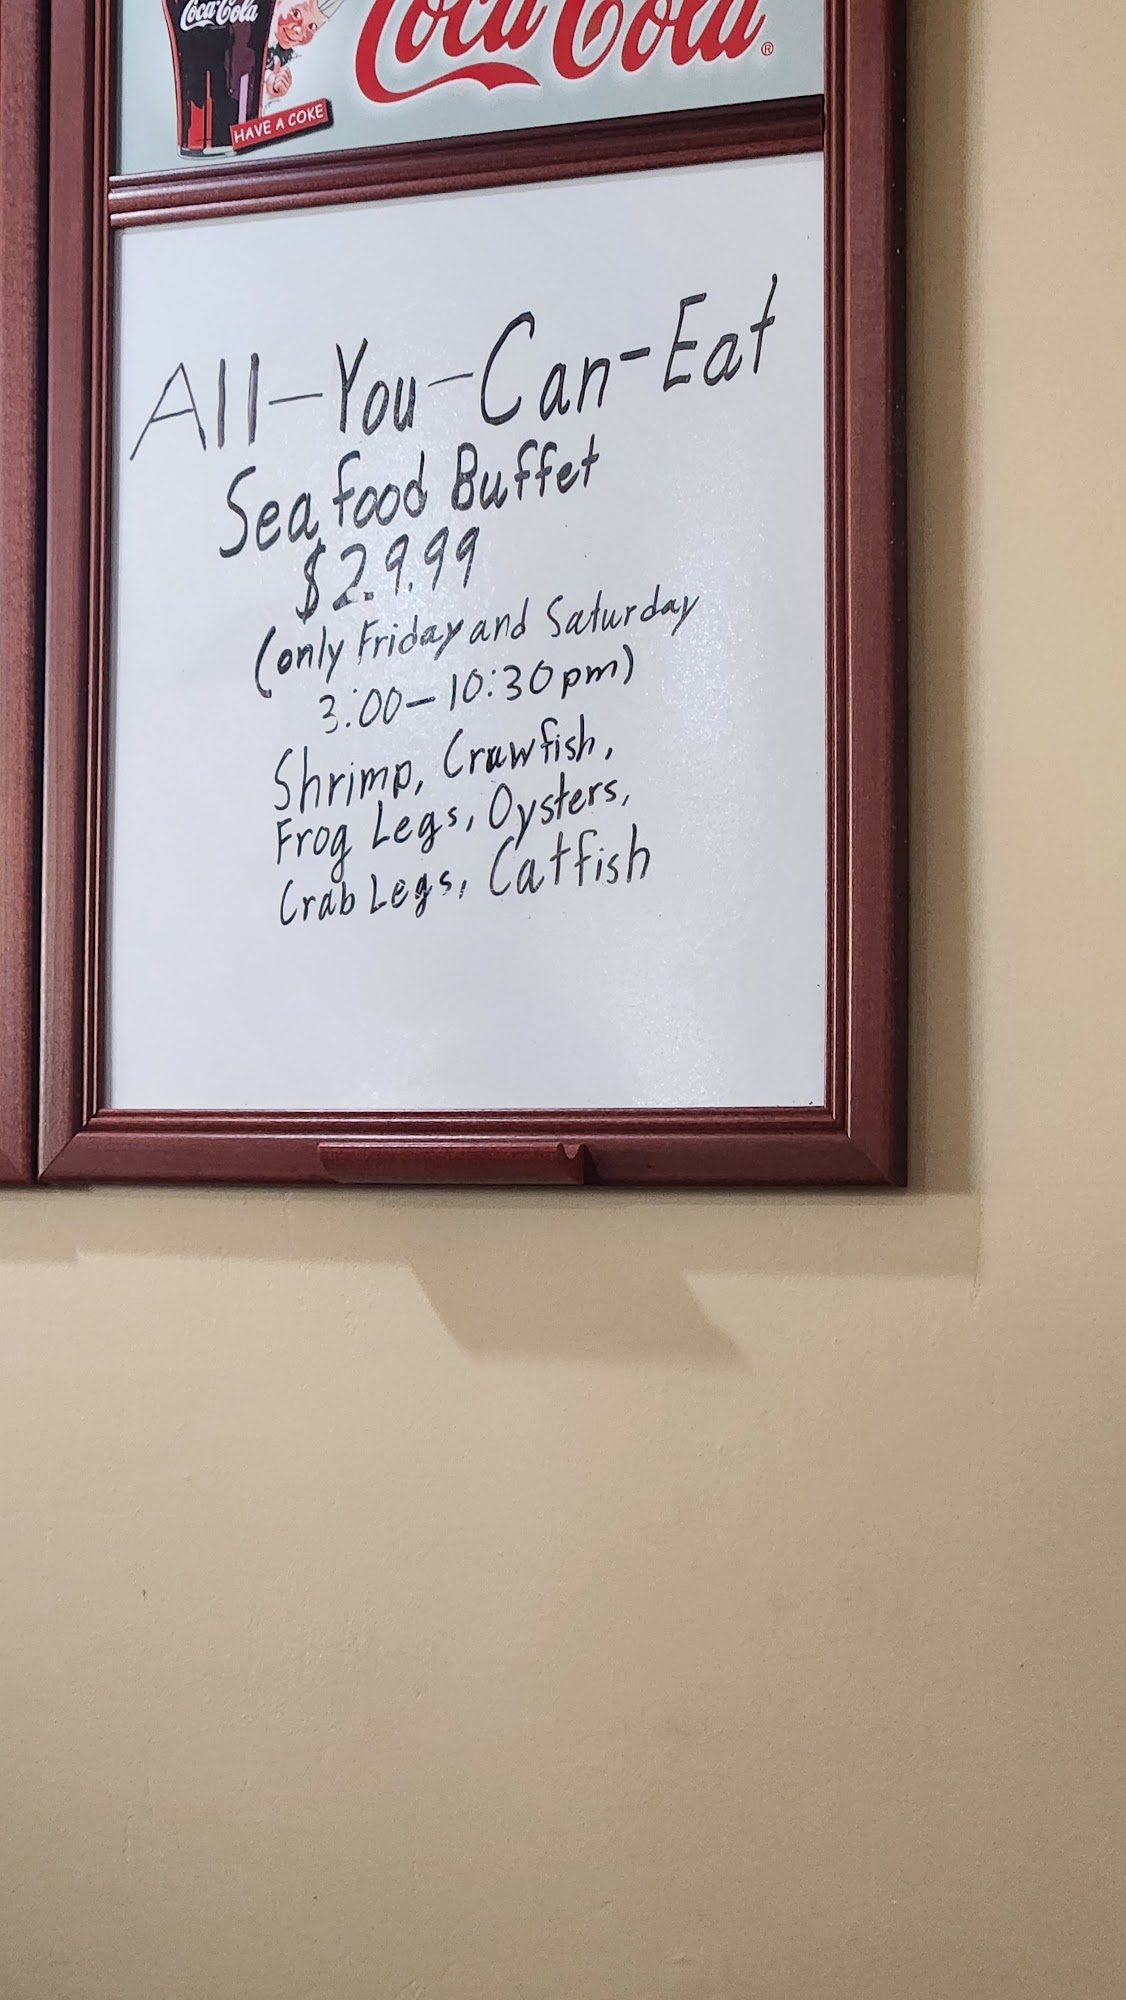 Coca-Cola
Coca-Cola®
HAVE A COKE
All-You-Can-Eat
Seafood Buffet
$29.99
(only Friday and Saturday
3:00-10:30pm)
Shrimp, Crawfish,
Frog Legs, Oysters,
Crab Legs, Catfish